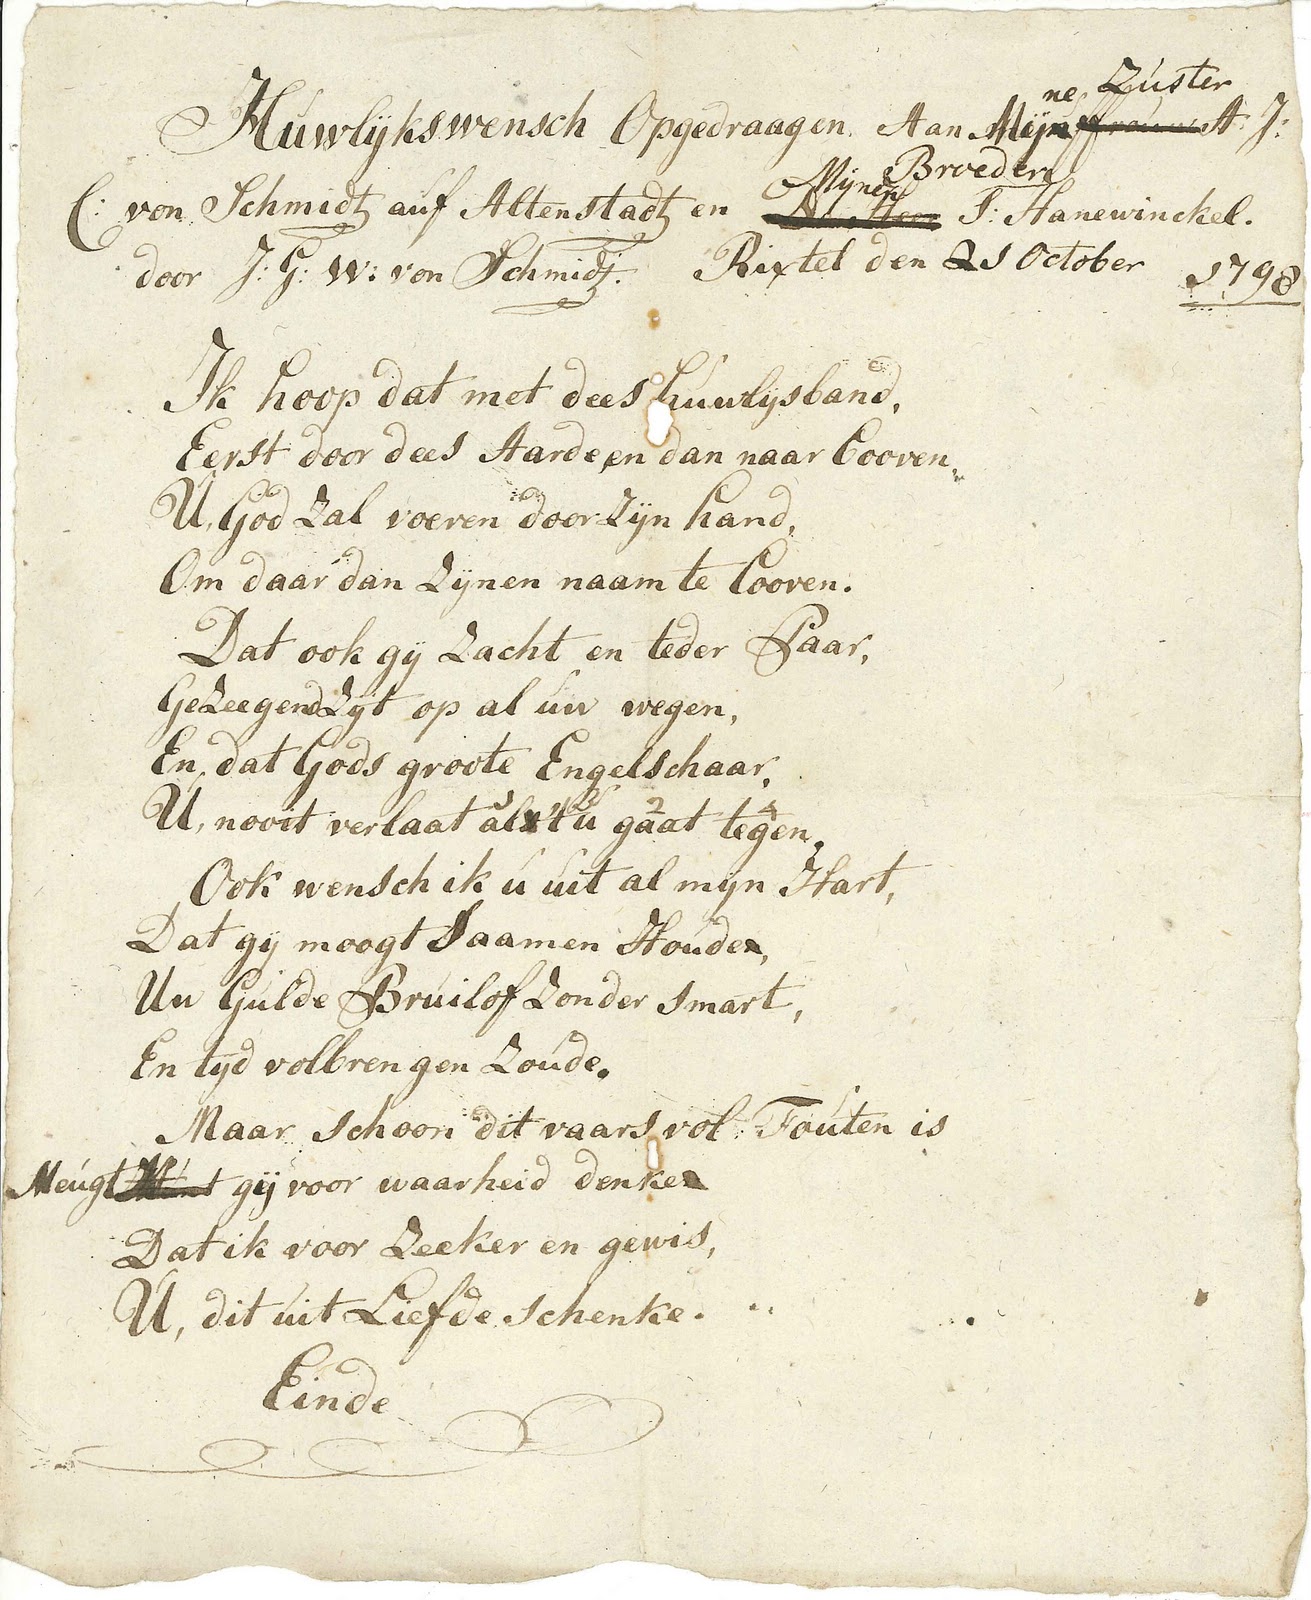 Huwlykswensch Opgedraagen. Aan Myne Zuster A: J:
C: von Schmidt auf Altenstadt en Mynen Broeder S: Hanewinckel.
door J: G: W: von Schmidt. Rixtel den 21 October 1798
Ik hoop dat met dees huwlysband,
Eerst door dees Aarde en dan naar booven,
U, God zal voeren door zyn hand,
Om daar dan zynen naam te looven.
Dat ook gy zacht en teder Paar,
Gezeegend zyt op al uw wegen,
En, dat Gods groote Engelschaar,
U, nooit verlaat als u gaat tegen,
Ook wensch ik u uit al myn Hart,
Dat gy moogt Saamen Houde,
Uw Gulde Bruilof zonder smart,
En tyd volbrengen zoude.
Maar schoon dit vaars vol Fouten is
Meugt gy voor waarheid denke
Dat ik voor zeeker en gewis,
U, dit uit Liefde schenke.
Einde